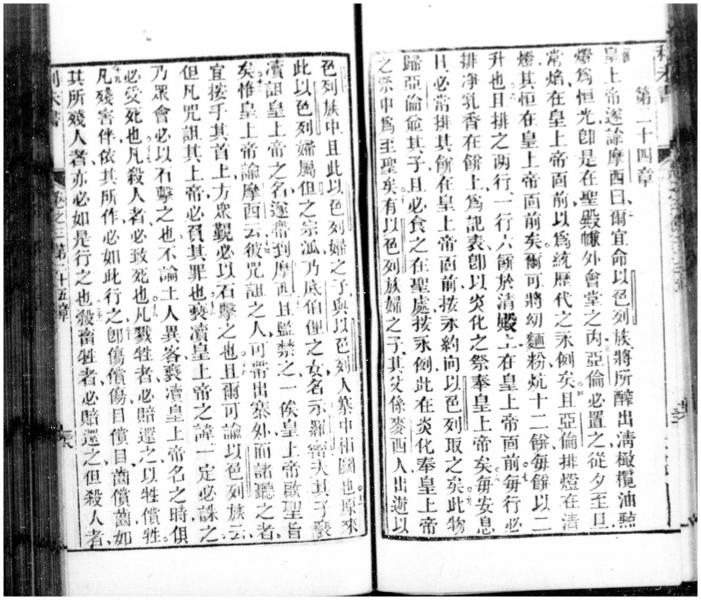 第二十四章
皇上帝遂諭摩西曰爾宜命以色列族將所醡出淸橄欖油㸃
燈爲恒光卽是在聖殿幪外會堂之內亞倫必置之從夕至旦
常焰在皇上帝面前以爲統歷代之永例矣且亞倫排燈在淸
燈其恒在皇上帝面前矣爾可將幼麵粉炕十二餅每餅以二
升也且排之兩行一行六餅於淸殿上在皇上帝面前每行必
排淨乳香在餅上爲記表卽以炎化之祭奉皇上帝矣每安息
日必常排其餅在皇上帝面前按永約向以色列取之矣此物
歸亞倫爺其子且必食之在聖處按永例此在炎化奉皇上帝
之祭中爲至聖矣有以色列族婦之子其父係麥西人出遊以
色列族中且此以色列婦之子與以色列人寨中相鬭也原來
此以色列婦屬但之宗派乃底伯俚之女名示羅密夫其子褻
瀆詛皇上帝之名遂帶到摩西且監禁之一俟皇上帝啟聖旨
矣惟皇上帝諭摩西云彼咒詛之人可將出寨外而諸聽之者
宜按手其首上方衆覲必以石擊之也且爾可諭以色列族云
但凡咒詛其上帝必負其罪也褻瀆皇上帝之諱一定必誅之
乃衆會必以石擊之也不論土人異客褻瀆皇上帝名之時俱
必受死也凡殺人者必致死也凡戮牲者必賠還之以牲償牲
凡殘害伴依其所作必如此行之卽傷償傷目償目齒償齒如
其所殘人者亦必如是行之也殺畜牲者必賠還之但殺人者
利未書
卷之三第二十五章